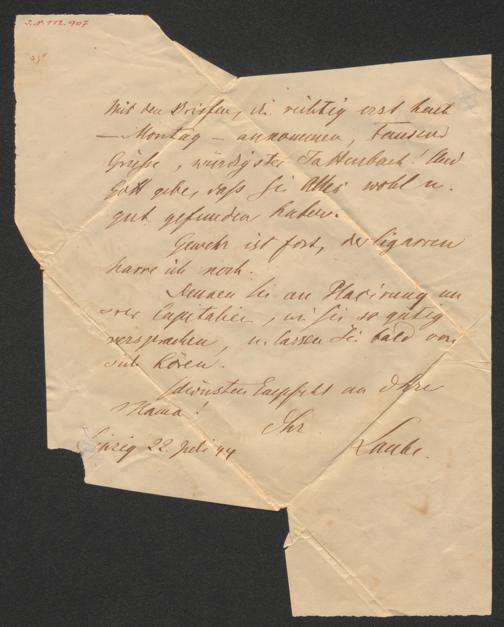 I.N. 112.907
Mit den Briefen, die richtig erst heut
– Montag – ankommen, Tausend
Grüße, würdigster Tattenbach! Und
Gott gebe, daß Sie Alles wohl u.
gut gefunden haben.
Gewehr ist fort, der Cigarren
harre ich noch.
Denken Sie an Placirung un
srer Capitalien, wie Sie so gütig
versprachen, u. lassen Sie bald von
sich hören.
schönsten Empfehl an Ihre
Mama!
Ihr
Laube.
Leipzig 22 Juli 44